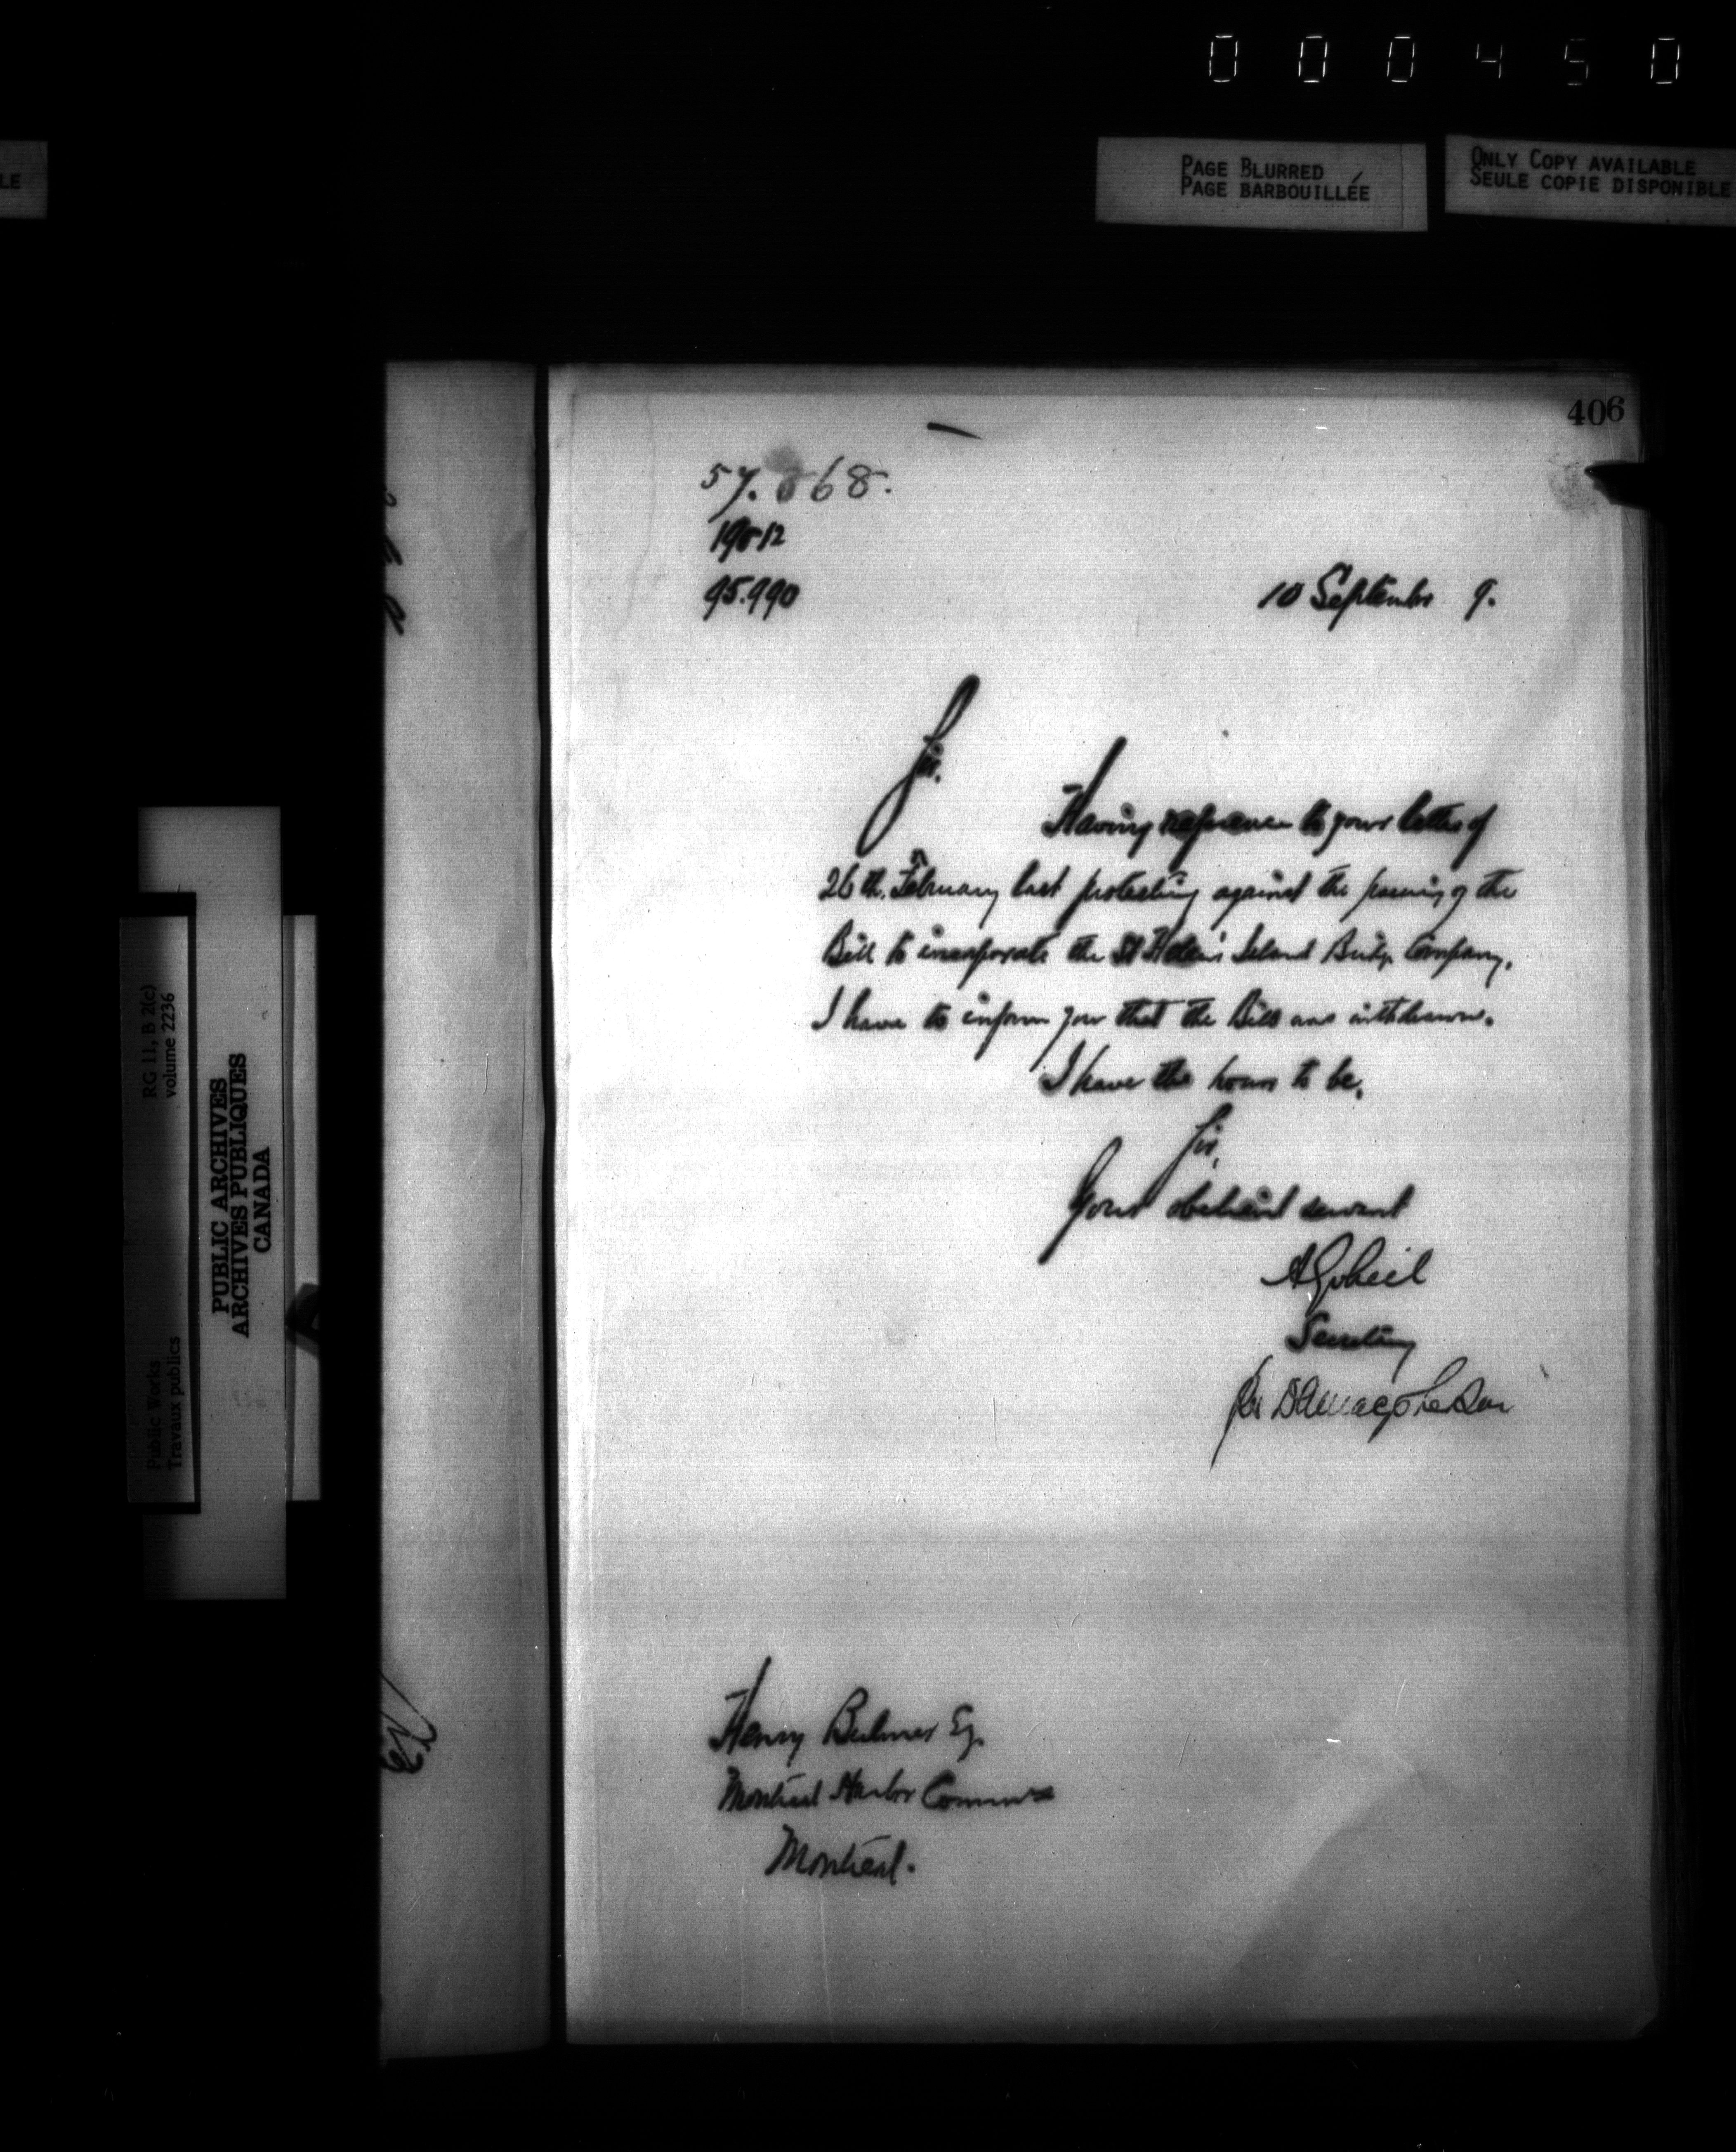 000450
LE
PAGE BLURRED
PAGE BARBOUILLÉE
ONLY COPY AVAILABLE
SEULE COPIE DISPONIBLE
406
57.868.
19512
95.990
10 September 9.
Sir.
Having reference to your letter of
26th. February last protesting against the passing of the
Bill to incorporate the St Helen's Island Bridge Company,
I have to inform you that the Bill was withdrawn.
I have the honor to be,
Sir,
Your obedient servant
A Gobeil
Secretary
per DAMacpherson
Henry Bulmer Esq.
Montreal Harbor Commrs
Montreal.
RG 11, B 2(c)
volume 2236
PUBLIC ARCHIVES
ARCHIVES PUBLIQUES
CANADA
Public Works
Travaux publics